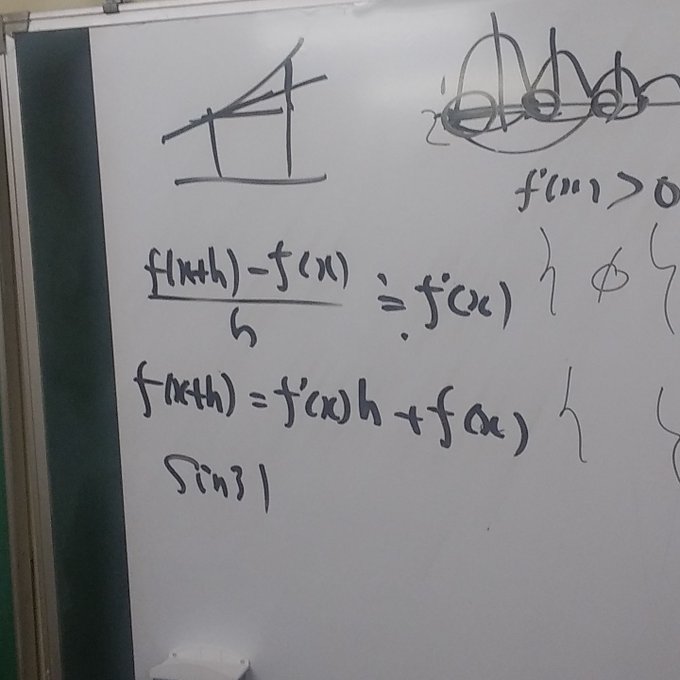 f'(x) > 0
f(x+h) - f(x)
h
≒ f'(x)
f(x+h) = f'(x)h + f(x)
Sin31